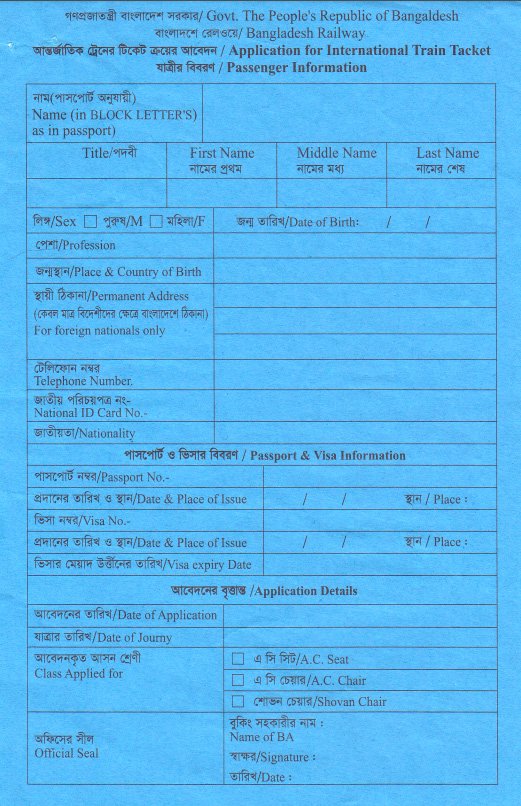 গণপ্রজাতন্ত্রী বাংলাদেশ সরকার/ Govt. The People's Republic of Bangaldesh
বাংলাদেশ রেলওয়ে/ Bangladesh Railway
আন্তর্জাতিক ট্রেনের টিকেট ক্রয়ের আবেদন / Application for International Train Tacket
যাত্রীর বিবরণ / Passenger Information
নাম(পাসপোর্ট অনুযায়ী)
Name (in BLOCK LETTER'S)
as in passport)
Title/পদবী First Name Middle Name Last Name
নামের প্রথম নামের মধ্য নামের শেষ
লিঙ্গ/Sex পুরুষ/M মহিলা/F জন্ম তারিখ/Date of Birth: / /
পেশা/Profession
জন্মস্থান/Place & Country of Birth
স্থায়ী ঠিকানা/Permanent Address
(কেবল মাত্র বিদেশীদের ক্ষেত্রে বাংলাদেশে ঠিকানা)
For foreign nationals only
টেলিফোন নম্বর
Telephone Number.
জাতীয় পরিচয়পত্র নং-
National ID Card No.-
জাতীয়তা/Nationality
পাসপোর্ট ও ভিসার বিবরণ / Passport & Visa Information
পাসপোর্ট নম্বর/Passport No.-
প্রদানের তারিখ ও স্থান/Date & Place of Issue / / স্থান / Place :
ভিসা নম্বর/Visa No.-
প্রদানের তারিখ ও স্থান/Date & Place of Issue / / স্থান / Place :
ভিসার মেয়াদ উর্ত্তীনের তারিখ/Visa expiry Date
আবেদনের বৃত্তান্ত /Application Details
আবেদনের তারিখ/Date of Application
যাত্রার তারিখ/Date of Journy
আবেদনকৃত আসন শ্রেণী
Class Applied for
এ সি সিট/A.C. Seat
এ সি চেয়ার/A.C. Chair
শোভন চেয়ার/Shovan Chair
অফিসের সীল
Official Seal
বুকিং সহকারীর নাম :
Name of BA
স্বাক্ষর/Signature :
তারিখ/Date :